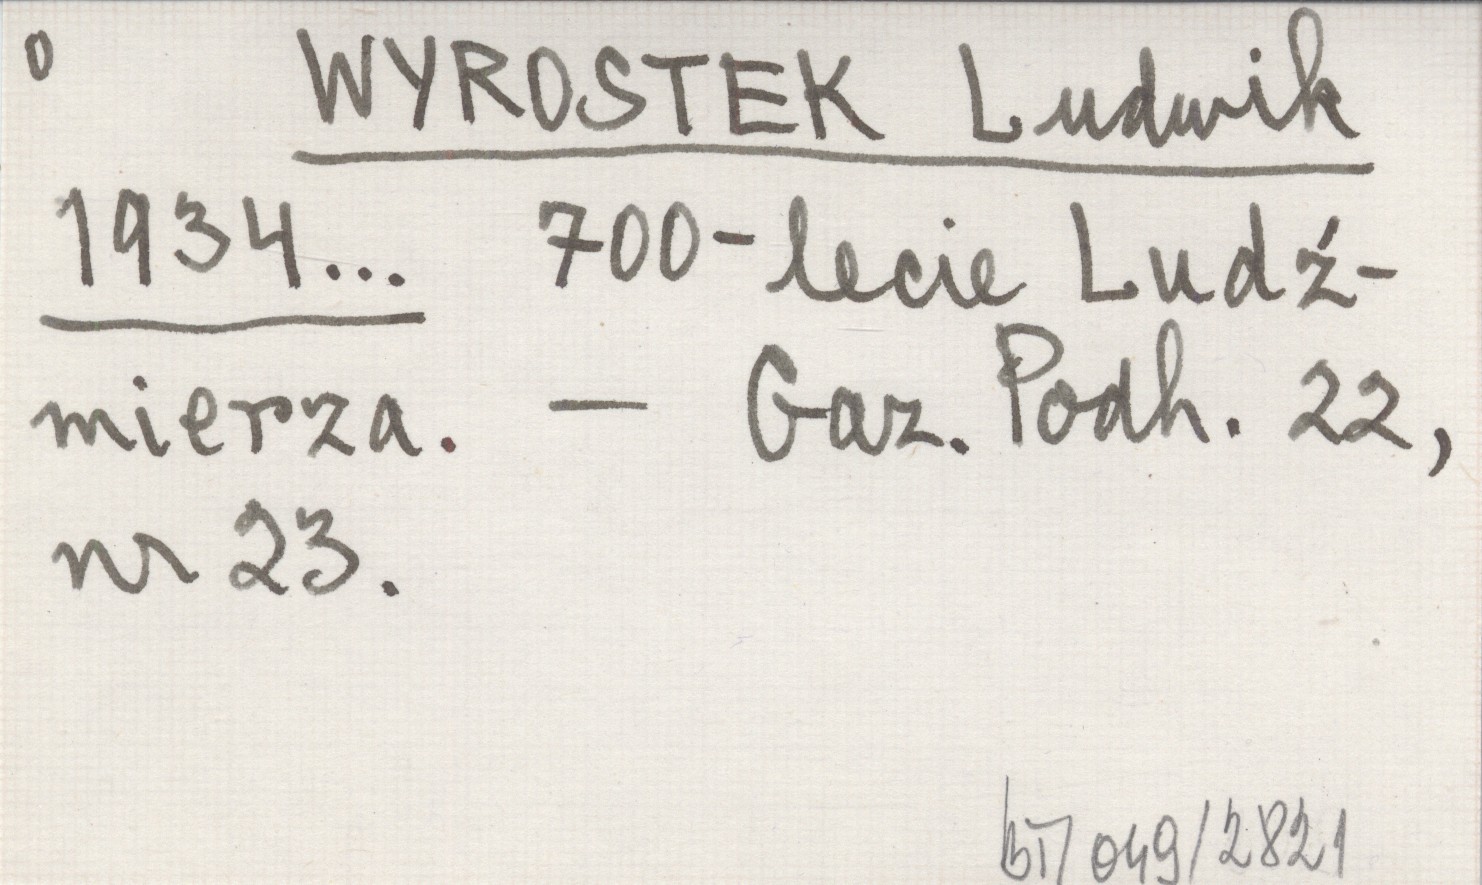 0 WYROSTEK Ludwik
1934... 700-lecie Ludź-
mierza. — Gaz. Podh. 22,
nr 23.
BT/049/2821